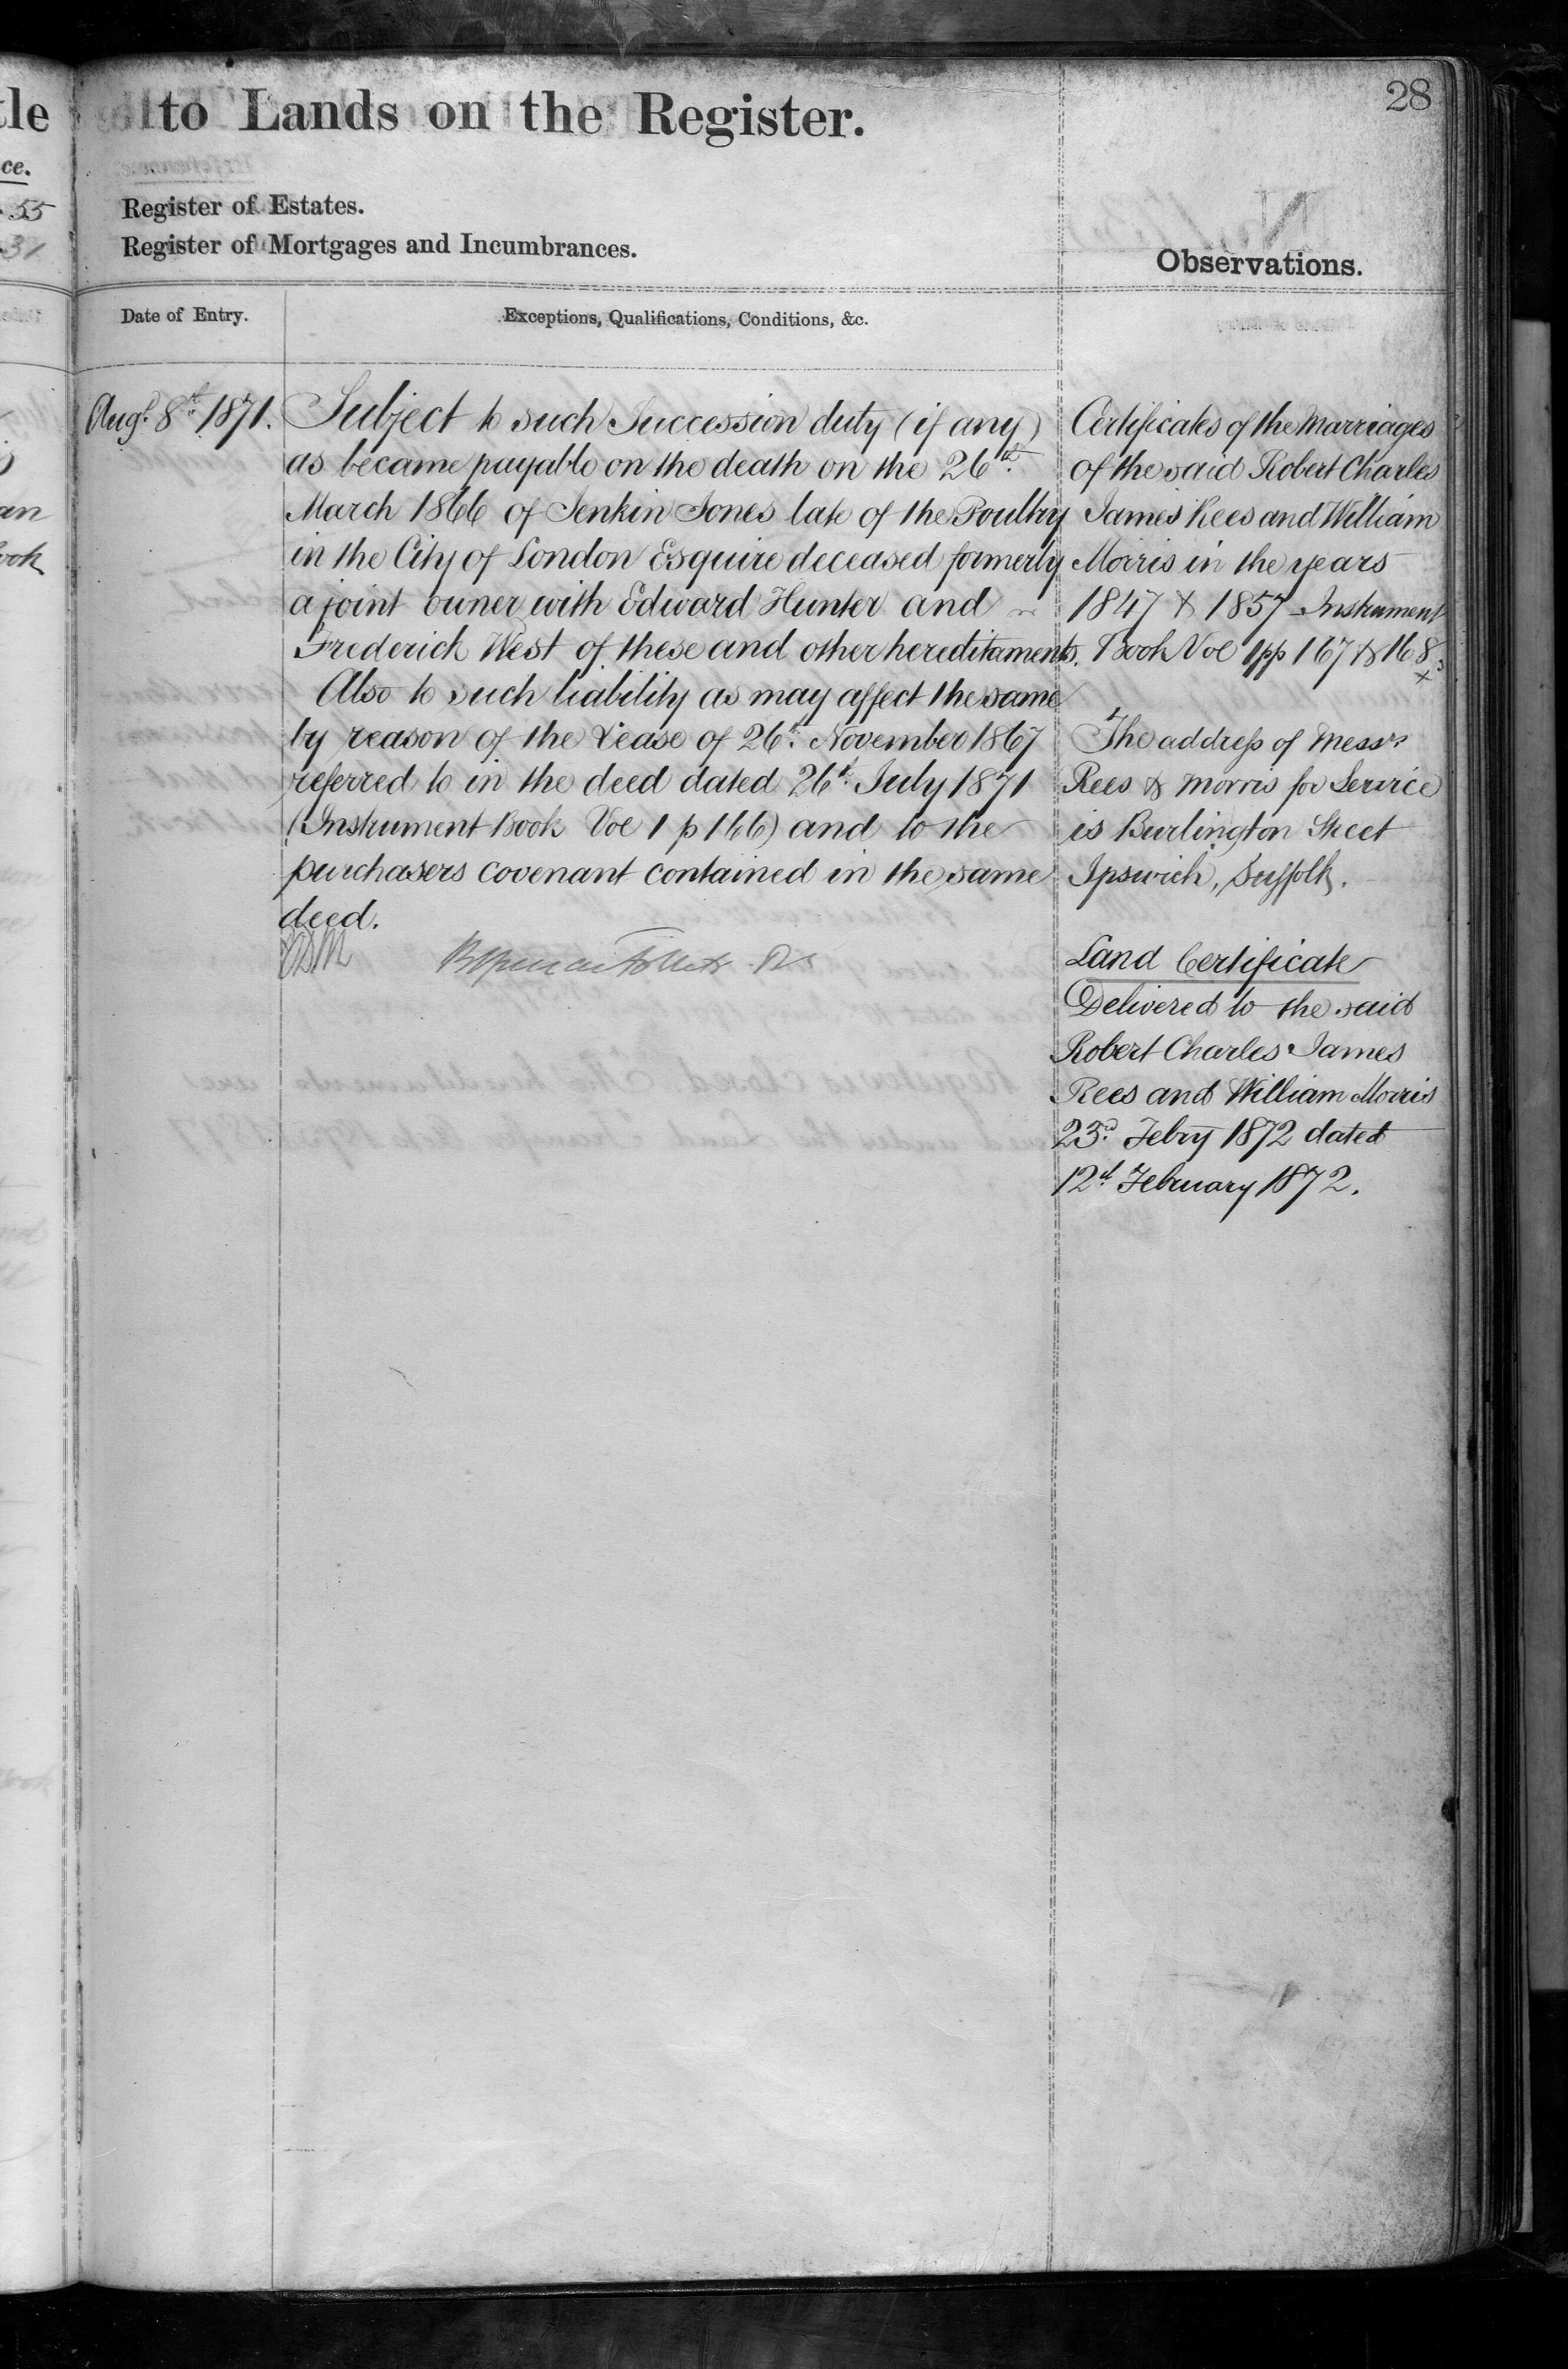 28
tle to Lands on the Register.
ce.
55
31
Register of Estates.
Register of Mortgages and Incumbrances.
Observations.
Date of Entry.
Exceptions, Qualifications, Conditions, &c.
an
ook
Augt. 8th. 1871.
Subject to such Succession duty (if any)
as became payable on the death on the 26th.
March 1866 of Jenkin Jones late of the Poultry
in the City of London Esquire deceased formerly
a joint owner with Edward Hunter and
Frederick West of these and other hereditaments.
Also to such liability as may affect the same
by reason of the Lease of 26th. November 1867
referred to in the deed dated 26th. July 1871
(Instrument Book Vol 1 p 166) and to the
purchasers covenant contained in the same
deed.
Certificates of the Marriages
of the said Robert Charles
James Rees and William
Morris in the years
1847 & 1857 - Instrument
Book Vol 1 pp 167 & 168
The address of Messrs
Rees & Morris for Service
is Burlington Street
Ipswich, Suffolk.
Land Certificate
Delivered to the said
Robert Charles James
Rees and William Morris
23rd. Febry 1872 dated
12th. February 1872.